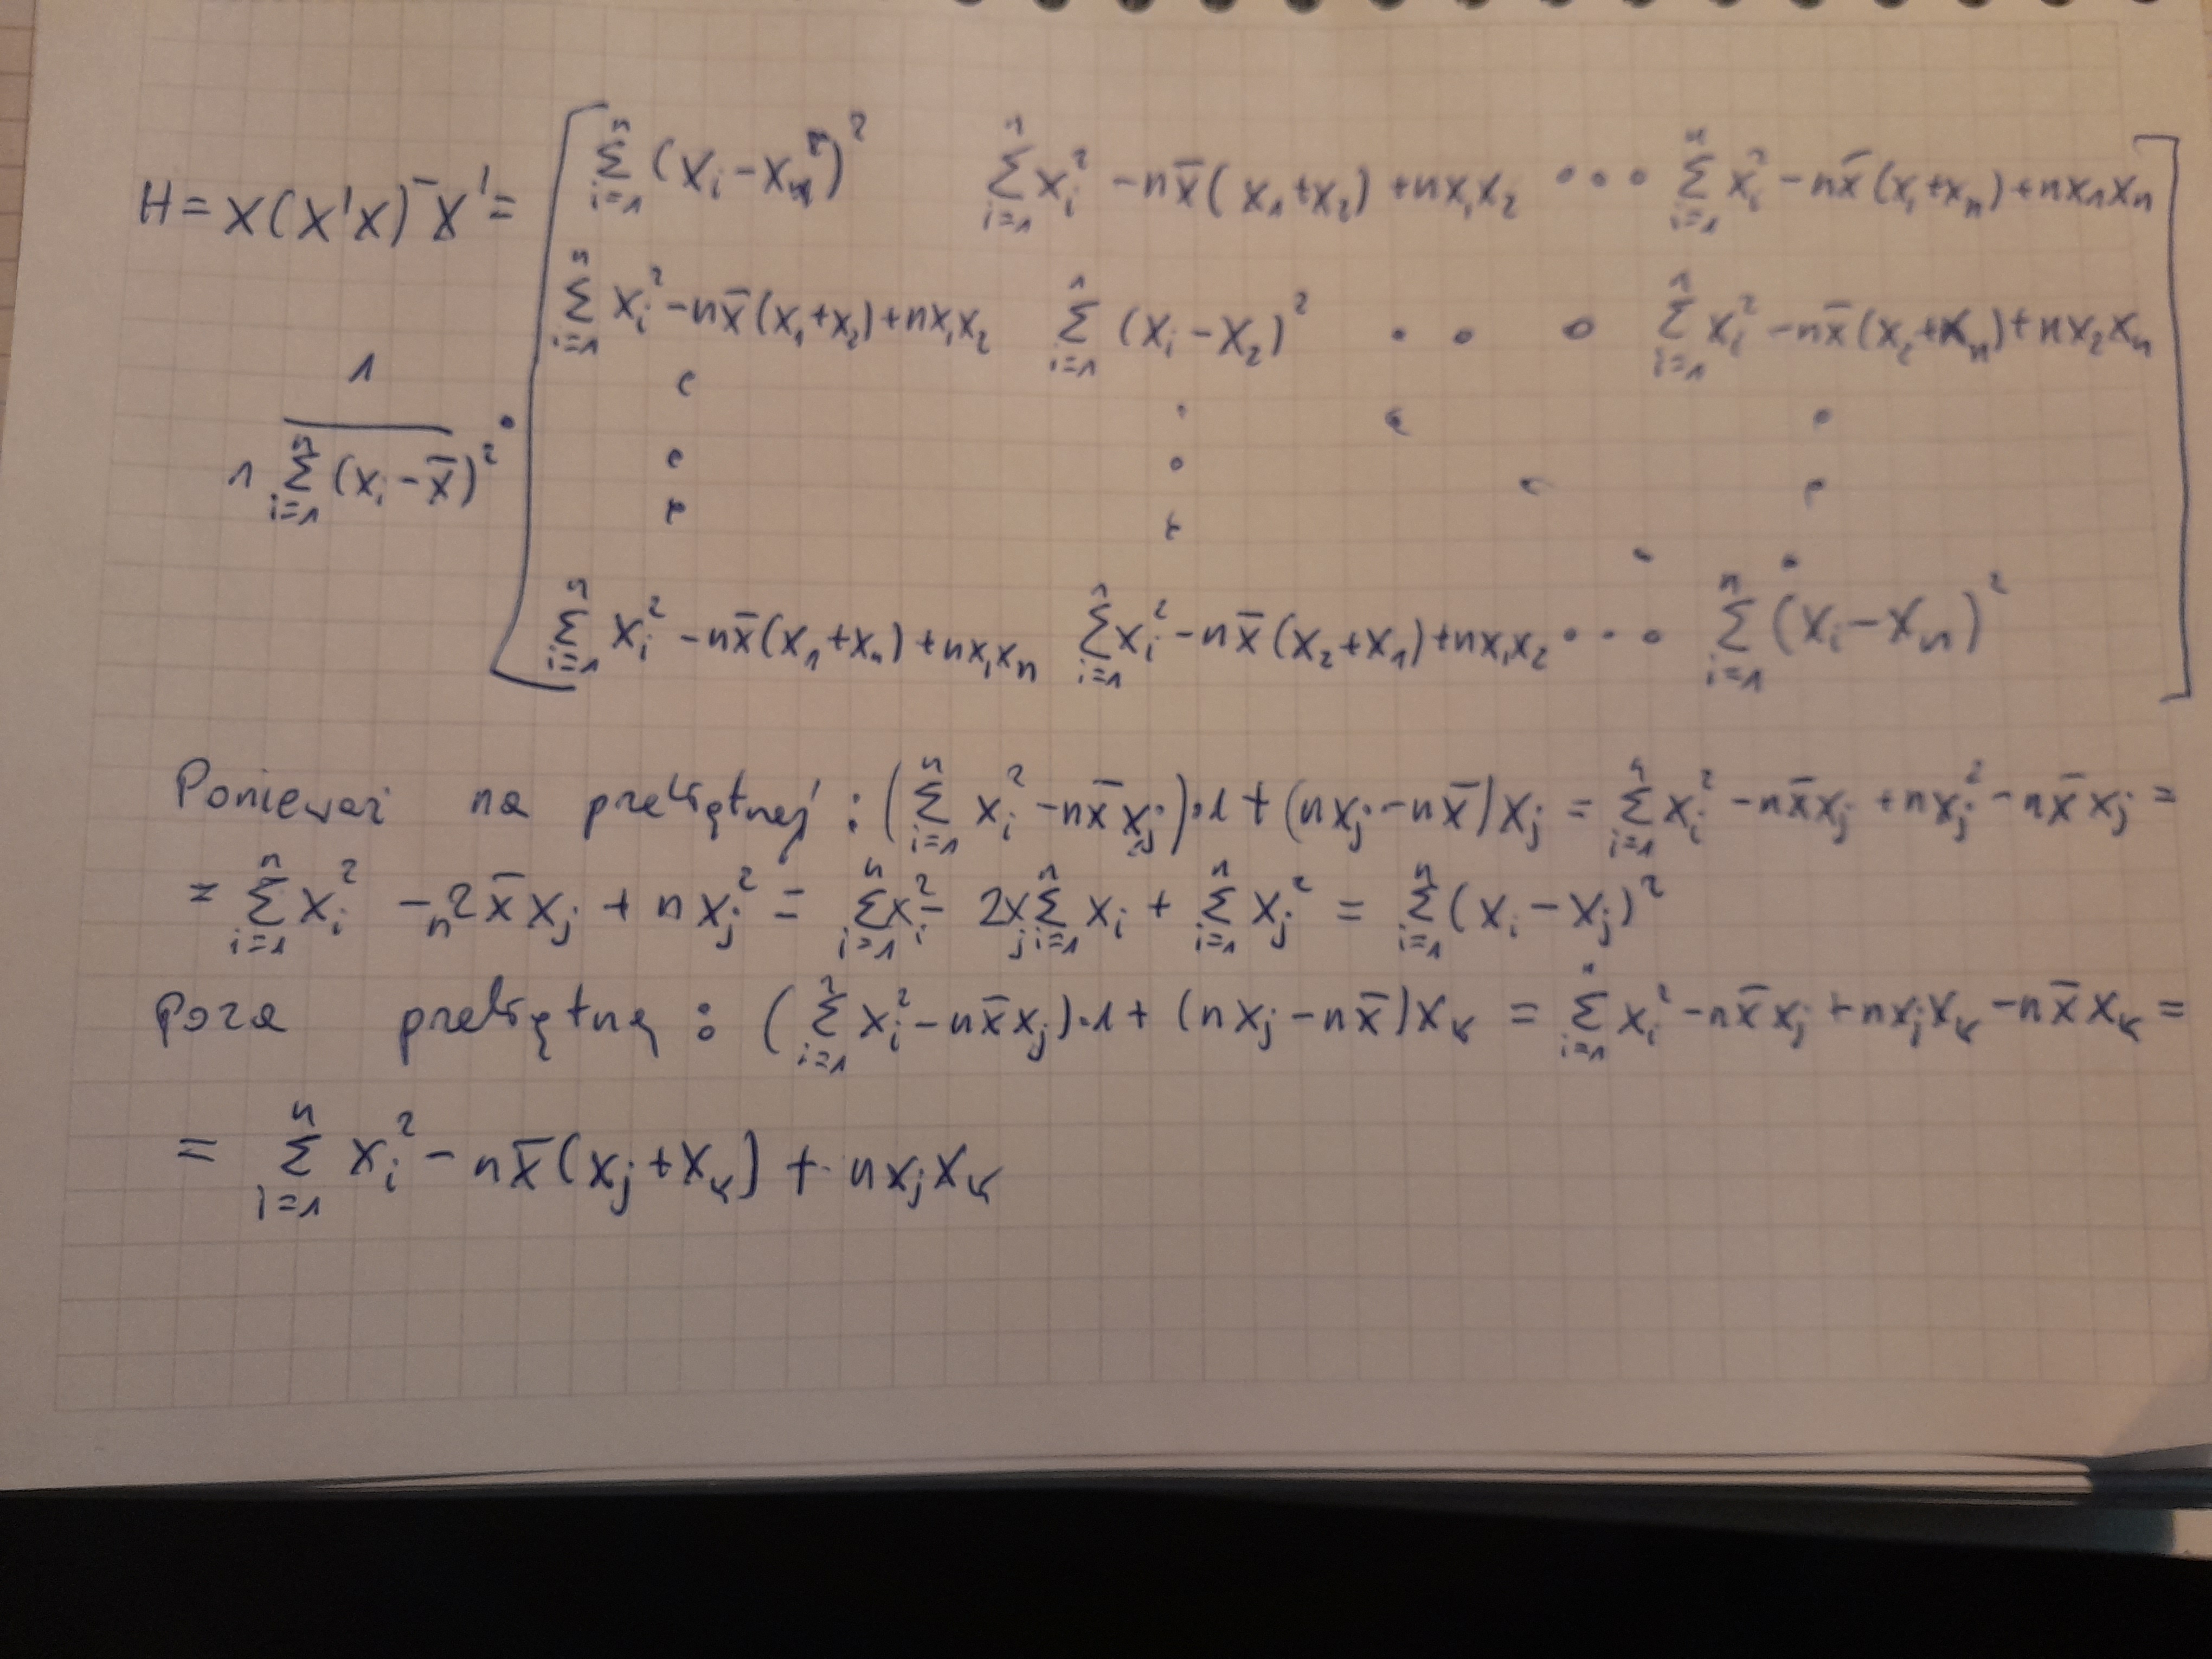 H = X(X'X)⁻X' = [ Σ_{i=1}^{n} (x_i − x_1)²   Σ_{i=1}^{n} x_i² − n x̄(x_1+x_2) + n x_1 x_2 • • • Σ_{i=1}^{n} x_i² − n x̄(x_1+x_n) + n x_1 x_n ]
Σ_{i=1}^{n} x_i² − n x̄(x_1+x_2) + n x_1 x_2   Σ_{i=1}^{n} (x_i − x_2)² • • • Σ_{i=1}^{n} x_i² − n x̄(x_2+x_n) + n x_2 x_n
1 / 1 Σ_{i=1}^{n} (x_i − x̄)² •
Σ_{i=1}^{n} x_i² − n x̄(x_1+x_n) + n x_1 x_n   Σ_{i=1}^{n} x_i² − n x̄(x_2+x_1) + n x_1 x_2 • • • Σ_{i=1}^{n} (x_i − x_n)²
Ponieważ na przekątnej : (Σ_{i=1}^{n} x_i² − n x̄ x_j)·1 + (n x_j − n x̄) x_j = Σ_{i=1}^{n} x_i² − n x̄ x_j + n x_j² − n x̄ x_j =
= Σ_{i=1}^{n} x_i² − n 2 x̄ x_j + n x_j² = Σ_{i=1}^{n} x_i² − 2 x_j Σ_{i=1}^{n} x_i + Σ_{i=1}^{n} x_j² = Σ_{i=1}^{n} (x_i − x_j)²
Poza przekątną : (Σ_{i=1}^{n} x_i² − n x̄ x_j)·1 + (n x_j − n x̄) x_k = Σ_{i=1}^{n} x_i² − n x̄ x_j + n x_j x_k − n x̄ x_k =
= Σ_{i=1}^{n} x_i² − n x̄(x_j + x_k) + n x_j x_k